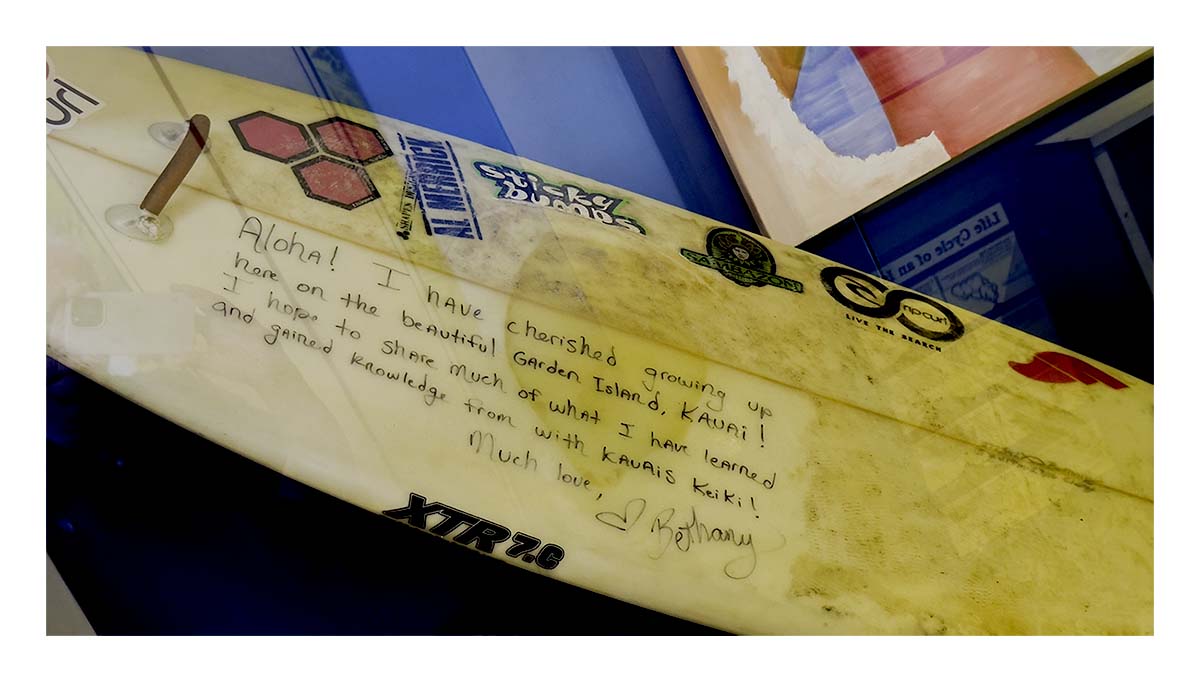 url
AL MERRICK
Sticky
bumps
SAMBAZON
rip curl
LIVE THE SEARCH
Life Cycle of an
Aloha! I have cherished growing up
here on the beautiful Garden Island, Kauai!
I hope to share much of what I have learned
and gained knowledge from with Kauais Keiki!
Much love,
♡ Bethany
XTR 7.C